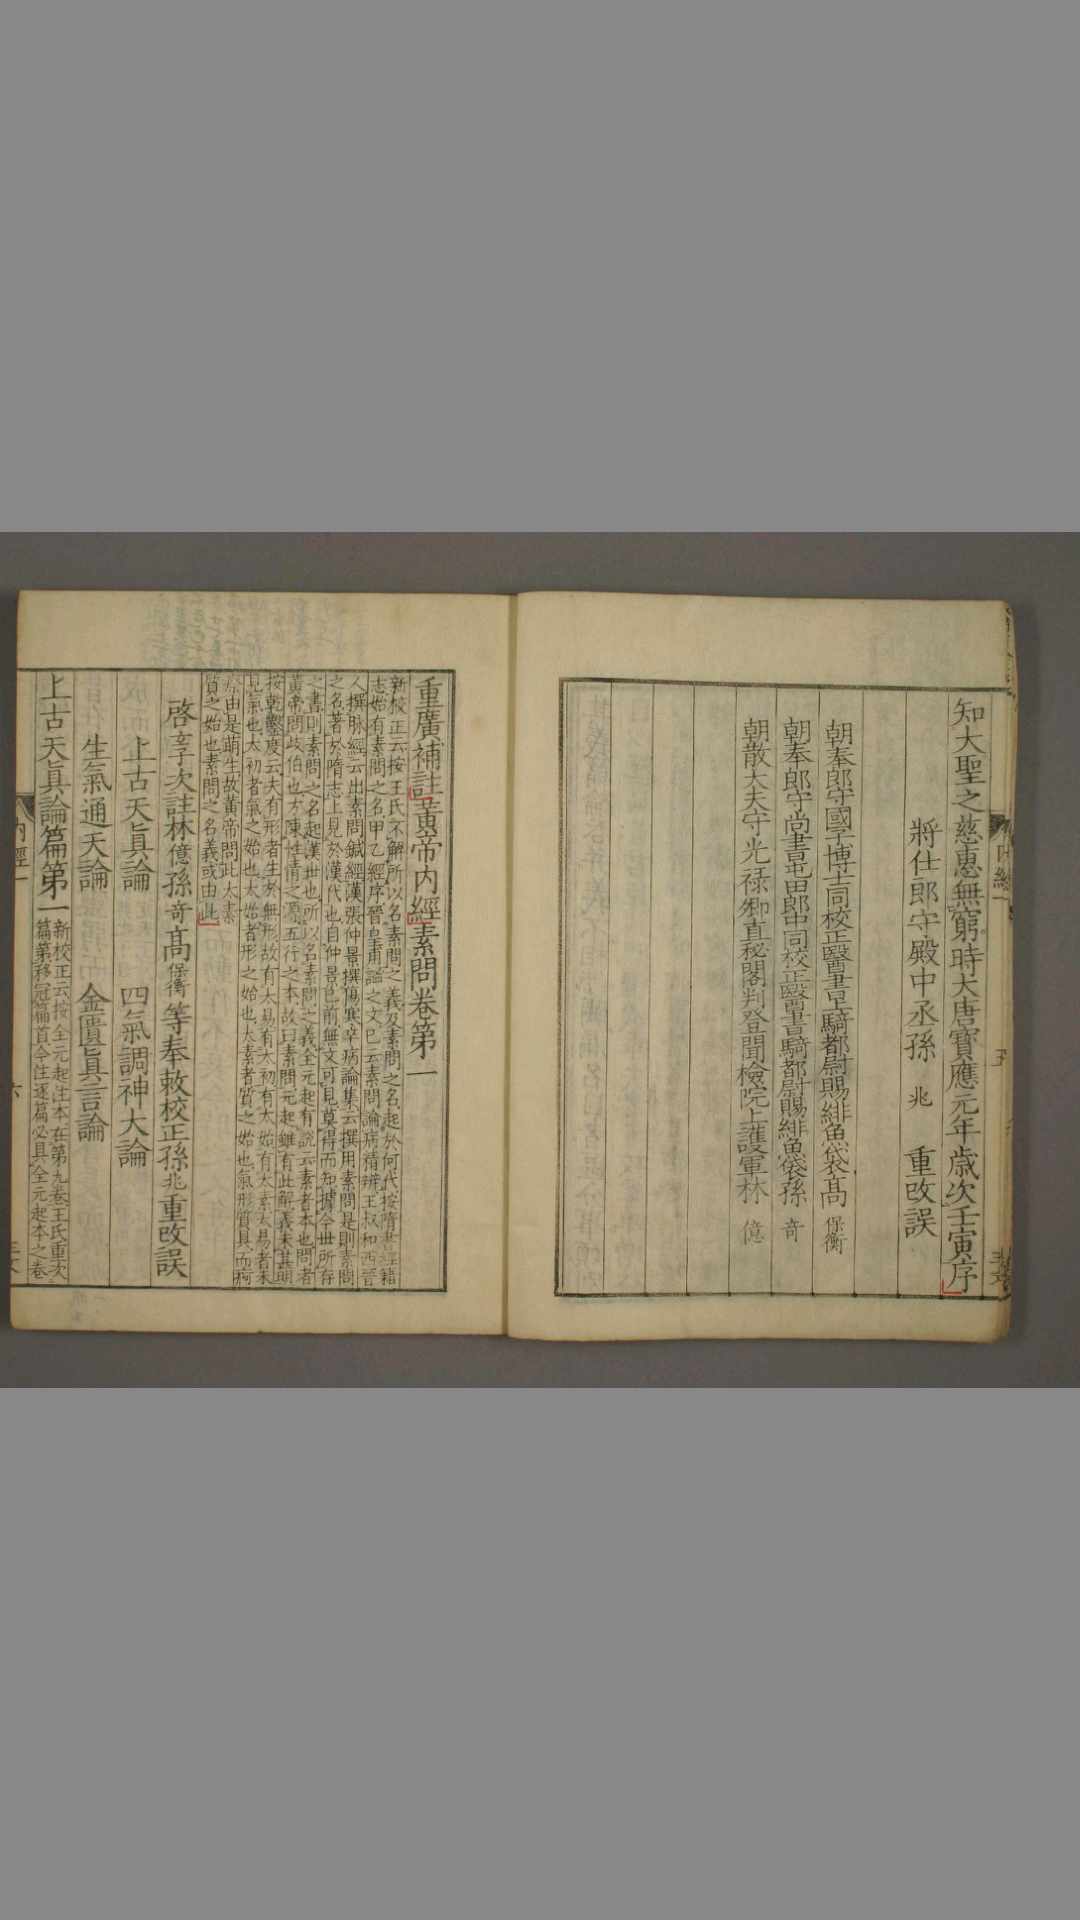 知大聖之慈惠無窮時大唐寶應元年歲次壬寅序
將仕郎守殿中丞孫 兆 重改誤
朝奉郎守國子博士同校正醫書上騎都尉賜緋魚袋高 保衡
朝奉郎守尚書屯田郎中同校正醫書騎都尉賜緋魚袋孫 奇
朝散大夫守光祿卿直秘閣判登聞檢院上護軍林 億
重廣補註黃帝內經素問卷第一
新校正云按王氏不解所以名素問之義及素問之名起於何代按隋書經籍
志始有素問之名甲乙經序晉皇甫謐之文已云素問論病精辨王叔和西晉
人撰脉經云出素問鍼經漢張仲景撰傷寒卒病論集云撰用素問是則素問
之名著於隋志上見於漢代也自仲景已前無文可見莫得而知據今世所存
之書則素問之名起漢世也所以名素問之義全元起有說云素者本也問者
黃帝問歧伯也方陳性情之源五行之本故曰素問元起雖有此解義未甚明
按乾鑿度云夫有形者生於無形故有太易有太初有太始有太素太易者未
見氣也太初者氣之始也太始者形之始也太素者質之始也氣形質具而痾
瘵由是萌生故黃帝問此太素
質之始也素問之名義或由此
啓玄子次註林億孫奇高保衡等奉敕校正孫兆重改誤
上古天眞論 四氣調神大論
生氣通天論 金匱眞言論
上古天眞論篇第一
新校正云按全元起注本在第九卷王氏重次
篇第移冠篇首今注逐篇必具全元起本之卷
內經一
六